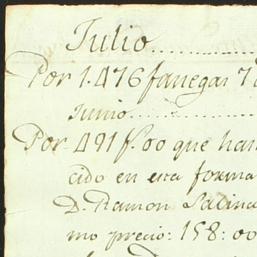 Julio
Por 1.476 fanegas 7
Junio
Por 491 f.s 00 que han
cido en esta forma
D. Ramon Salina
mo precio: 158: 00